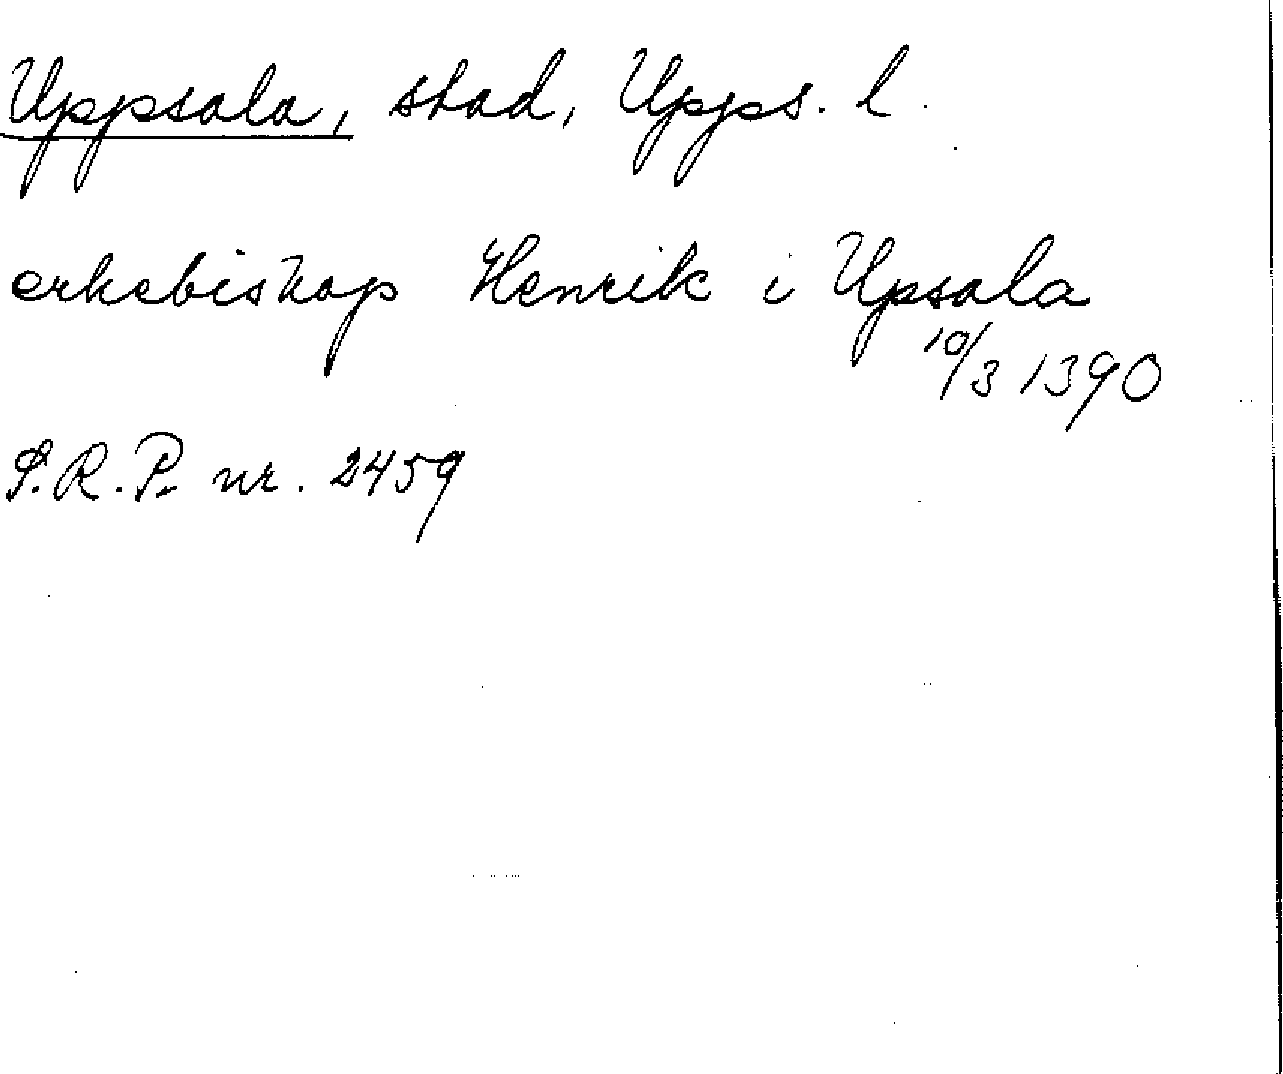 Uppsala, stad, Upps. l.
ärkebiskop Henrik i Upsala
10/3 1390
S.R.P. nr. 2459